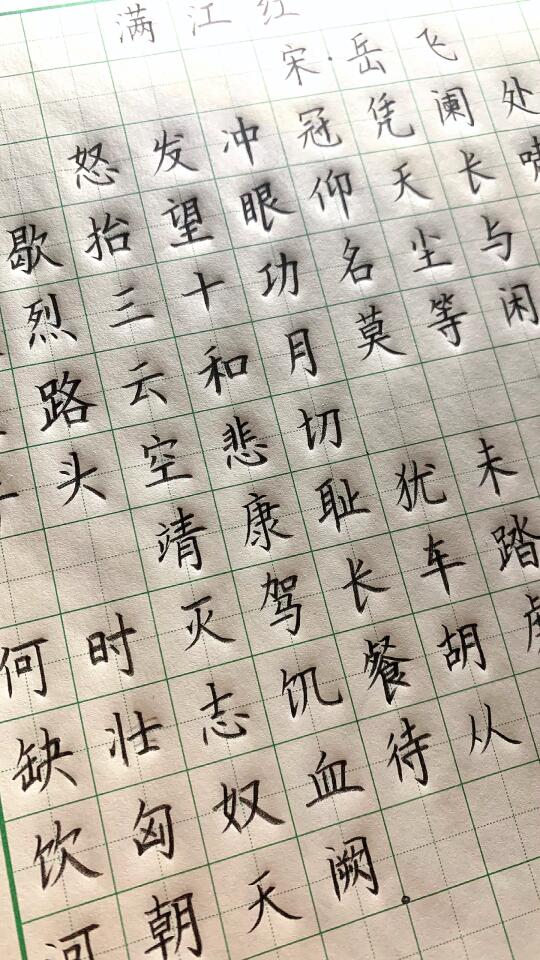 满江红
宋·岳飞
怒发冲冠凭阑处
歇抬望眼仰天长啸
烈三十功名尘与
路云和月莫等闲
头空悲切
靖康耻犹未
何时灭驾长车踏
缺壮志饥餐胡虏
饮匈奴血待从
河朝天阙.